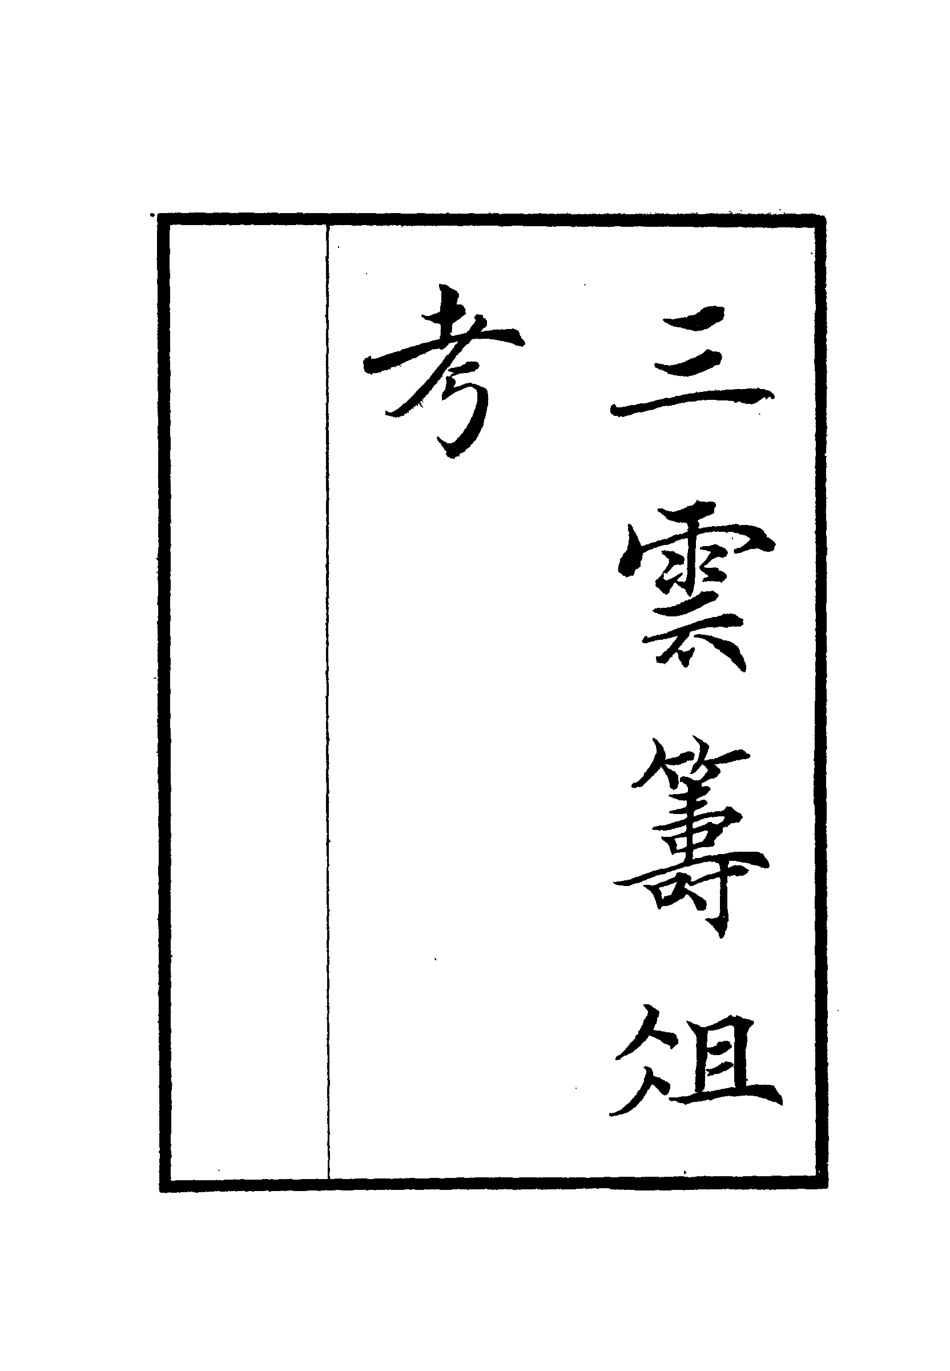 三雲籌俎
考